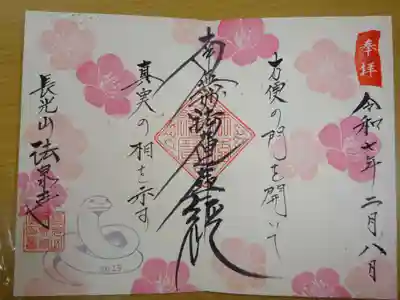 奉拝
令和七年二月八日
方便の門を開いて
南無妙法蓮華経
真実の相を示す
長光山
法泉寺
2025